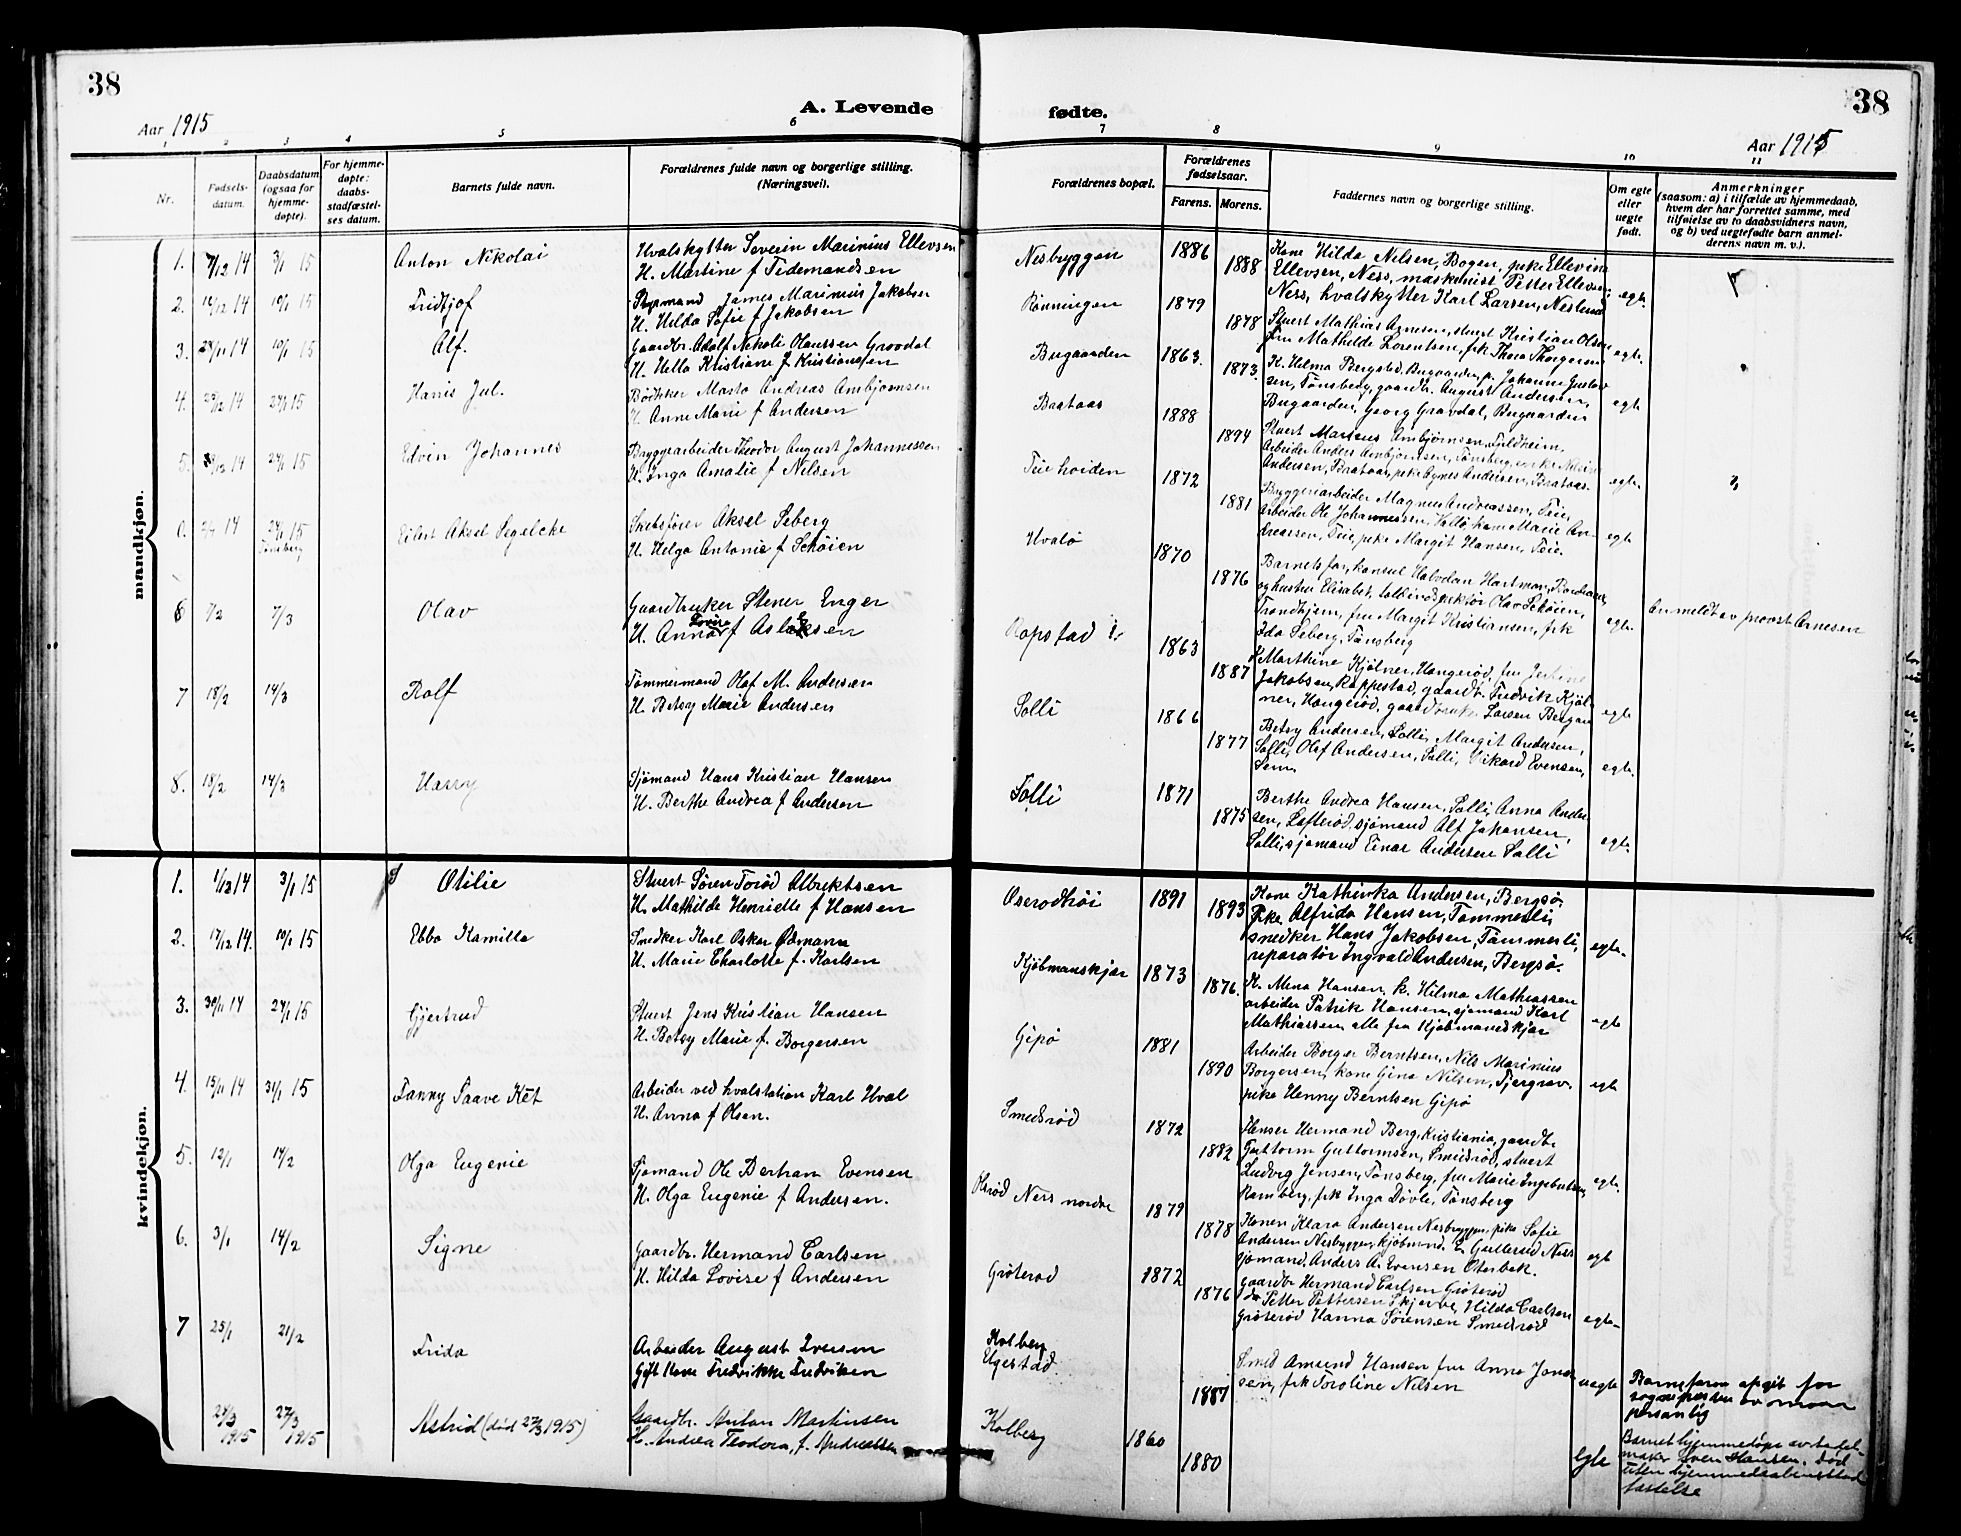 38
A. Levende
fødte.
38
Aar 1915
Aar 1915
1 2 3 4 5 6 7 8 9 10 11
Nr.
Fødsels-
datum.
Daabsdatum
(ogsaa for
hjemme-
døpte).
For hjemme-
døpte:
daabs-
stadfæstel-
ses datum.
Barnets fulde navn.
Forældrenes fulde navn og borgerlige stilling.
(Næringsvei).
Forældrenes bopæl.
Forældrenes
fødselsaar.
Farens. Morens.
Faddernes navn og borgerlige stilling.
Om egte
eller
uegte
født.
Anmerkninger
(saasom: a) i tilfælde av hjemmedaab,
hvem der har forrettet samme, med
tilføielse av to daabsvidners navn,
og b) ved uegtefødte barn anmel-
derens navn m. v.).
mandkjøn.
1. 7/12 14 3/1 15 Anton Nikolai
Hvalskytter Severin Marinius Ellevsen
H. Martine f Tidemandsen
Nesbryggen 1886 1888
Kone Hilda Nilsen, Bogen, pike Ellevine
Ellevsen, Ness, maskinist Petter Ellevsen,
Ness, hvalskytter Karl Larsen, Neslund
egte.
2. 14 10/1 15 Fridtjof
Styrmand James Marinius Jakobsen
H. Hilda Sofie f Jakobsen
Rønningen 1879 1878
Stuert Mathias Arnesen, stuert Kristian Olsen
fru Mathilde Lorentsen, frk Thora Thorgersen
egte.
3. 14 10/1 15 Alf.
Gaardbr. Adolf Nikoli Olaussen Gravdal
H. Hella Kristiane f Kristiansen
Bugaarden 1863. 1873.
K. Helma Bergsted, Bugaarden, p. Johanne Gustav
sen, Tønsberg, gaardbr. August Andersen,
Bugaarden, Georg Gravdal, Bugaarden
egte
4. 14 24/1 15 Hans Jul.
Bødkker Marto Andreas Ambjørnsen
H. Anne Marie f Andersen
Brataas 1888 1894
Stuert Marius Ambjørnsen, Fuldheim,
Arbeider Anders Ambjørnsen, Tønsberg, Nilsine
Andersen, Brataas, pike Agnes Andersen, Brataas.
egte.
5. 14 24/1 15 Edvin Johannes
Bryggerarbeider Theodor August Johannessen
H. Inga Amalie f Nilsen
Teie heiden 1872 1881
Bryggeriarbeider Magnus Andreassen, Teie,
Arbeider Ole Johannessen, Solli kone Marie An-
dreassen, Teie, pike Margit Hansen, Teie.
egte
14 24/1 15 Tønsberg
Eilert Aksel Segelcke
Skibsfører Aksel Seberg
H. Helga Antonie f Schøien
Hvalø 1870 1876
Barnets far, konsul Halvdan Hartman,
og hustru Elisabet, tolkindspektør Olav Schøien,
Trondhjem, fru Margit Kristiansen, frk
Ida Seberg, Tønsberg
egte.
Anmeldt av provst Arnesen
6 7/2 7/3 Olav
Gaardbruker Stener Enger
H. Anna Lovise f Aslaksen
Ropstad 1863 1887
Marthine Kjølner, Hangerød, fru
Jakobsen, Roppestad, gaardbr. Fredrik Kjøl-
ner, Hangerød, gaardbruk. Larsen Bergan
egte
7 18/2 14/3 Rolf
Tømmermand Olaf M. Andersen
H. Betsy Marie Andersen
Solli 1866 1877
Betsy Andersen, Solli, Margit Andersen,
Solli, Olaf Andersen, Solli, Rikard Evensen,
Sem.
egte.
8. 18/2 14/3 Harry
Sjømand Hans Kristian Hansen
H. Berthe Andrea f Andersen
Solli 1871 1875
Berthe Andrea Hansen, Solli, Anna Ander
sen, Lofterød, sjømand Alf Johansen,
Solli, sjømand Einar Andersen Solli
egte.
kvindekjøn.
1. 1/12 14 3/1 15 Otilie
Stuert Søren Torød Albrektsen
H. Mathilde Henriette f Hansen
Oserodhøi 1891 1893
Kone Kathinka Andersen, Bergsø,
Pike Alfrida Hansen, Tømmerli,
snedker Hans Jakobsen, Tømmerli,
reparatør Ingvald Andersen, Bergsø.
egte.
2. 17/12 14. 10/1 15 Ebba Kamilla
Snedker Karl Oskar Ødmann
H. Marie Charlotte f. Karlsen
Kjøbmanskjær 1873 1876.
K. Mena Hansen, k. Hilma Mathiassen
arbeider Patrik Hansen, sjømand Karl
Mathiassen, alle fra Kjøbmandskjær
egte
3. 30/11 14 24/1 15 Gjertrud
Stuert Jens Kristian Hansen
H. Betsy Marie f. Borgersen
Gipø 1881 1890
Arbeider Borger Berntsen, Nils Marinius
Borgersen, kone Gina Nilsen, Tjergrav.
pike Henny Berntsen Gipø
egte
4. 15/11 14 31/1 15 Fanny Saave Ket
Arbeider ved hvalstation Karl Hval
H. Anna f Olsen.
Smedsrød 1872 1882
Slenser Hermand Berg, Kristiania, gaardbr
Guttorm Guttormsen, Smedsrød, stuert
Ludvig Jensen, Tønsberg, fru Marie Ingebretsen,
Ramberg, frk Inga Døvle, Tønsberg
egte.
5. 12/1 14/2 Olga Eugenie
Sjømand Ole Bertran Evensen
H. Olga Eugenie f Andersen.
Ness nordre 1879 1878
Konen Klara Andersen Nesbryggen, pike Sofie
Andersen Nesbryggen, kjøbmnd. E. Gullerud Ness
sjømand, Anders A. Evensen Oterbek.
egte
6. 3/1 14/2 Signe
Gaardbr. Hermand Carlsen
H. Hilda Lovise f Andersen
Grøterød 1872 1876
gaardbr Hermand Carlsen Grøterød
do Petter Pettersen Skjerve, Hilda Carlsen
Grøterød Hanna Sørensen Smedsrød
egte
7 25/1 21/2 Frida
Arbeider August Iversen
Gift Kone Fredrikke Fredriksen
Kolberg
Ugestad 1887
Smed Amund Hansen fru Anna Jonas
sen, frk Toroline Nilsen
uegte
Barnefaren opgit for
sognepresten av moren
personlig
24/3 1915 27/3 1915 Astrid (død 27/3 1915)
Gaardbr. Anton Martinsen
H. Andrea Teodora, f. Andreassen
Kolberg 1860 1880
Egte
Barnet hjemmedøpt av
maker Sven Hansen. Død
uten hjemmedaabensstad
fæstelse